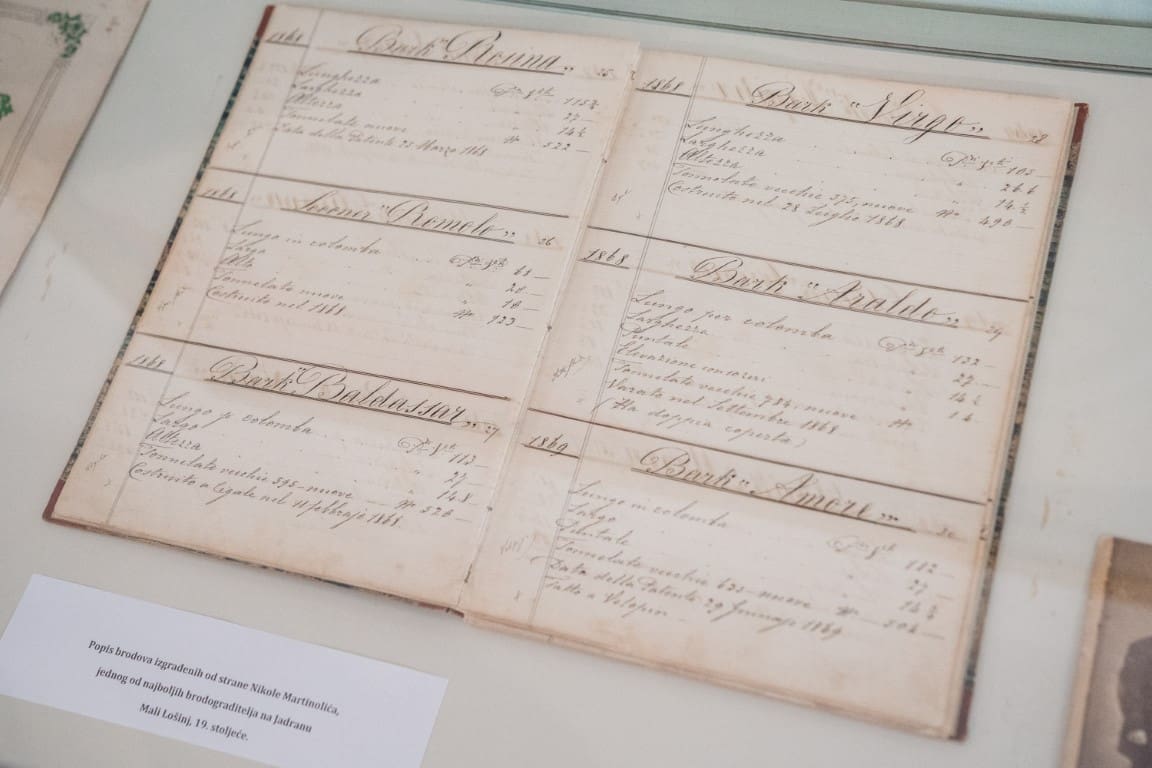 1868 Bark "Rosina„ 25
Lunghezza
Larghezza 27—
Altezza 14½
Tonnelate nuove № 522—
Data della Patente 23 Marzo 1868
1868 Scooner "Romolo„ 26
Lungo in colomba 68—
Largo 20—
Alto 10—
Tonnelate nuove № 133—
Costruito nel 1868
1868 Bark "Baldassar„ 27
Lungo p colomba 113—
Largo 27—
Altezza
Tonnelate vecchie 595—nuove № 520—
Costruito a Cigale nel 11 febbrajo 1868
1868 Bark "Virgo„ 28
Lunghezza 105—
Larghezza 26 6
Altezza 14½
Tonnelate vecchie 575, nuove № 490—
Costruito nel 28 Luglio 1868
1868 Bark "Araldo„ 29
Lungo per colomba 122—
Larghezza 27—
Puntale
Elevazione
Tonnelate vecchie 784, nuove №
Varato nel Settembre 1868
(Ha doppia coperta)
1869 Bark "Amore„ 30
Lungo in colomba 112—
Largo 27—
Puntale 14½
Tonnelate vecchie 633—nuove № 504—
Data della Patente 29 Gennajo 1869
Fatto a
Popis brodova izgrađenih od strane Nikole Martinolića,
jednog od najboljih brodograditelja na Jadranu
Mali Lošinj, 19. stoljeće.